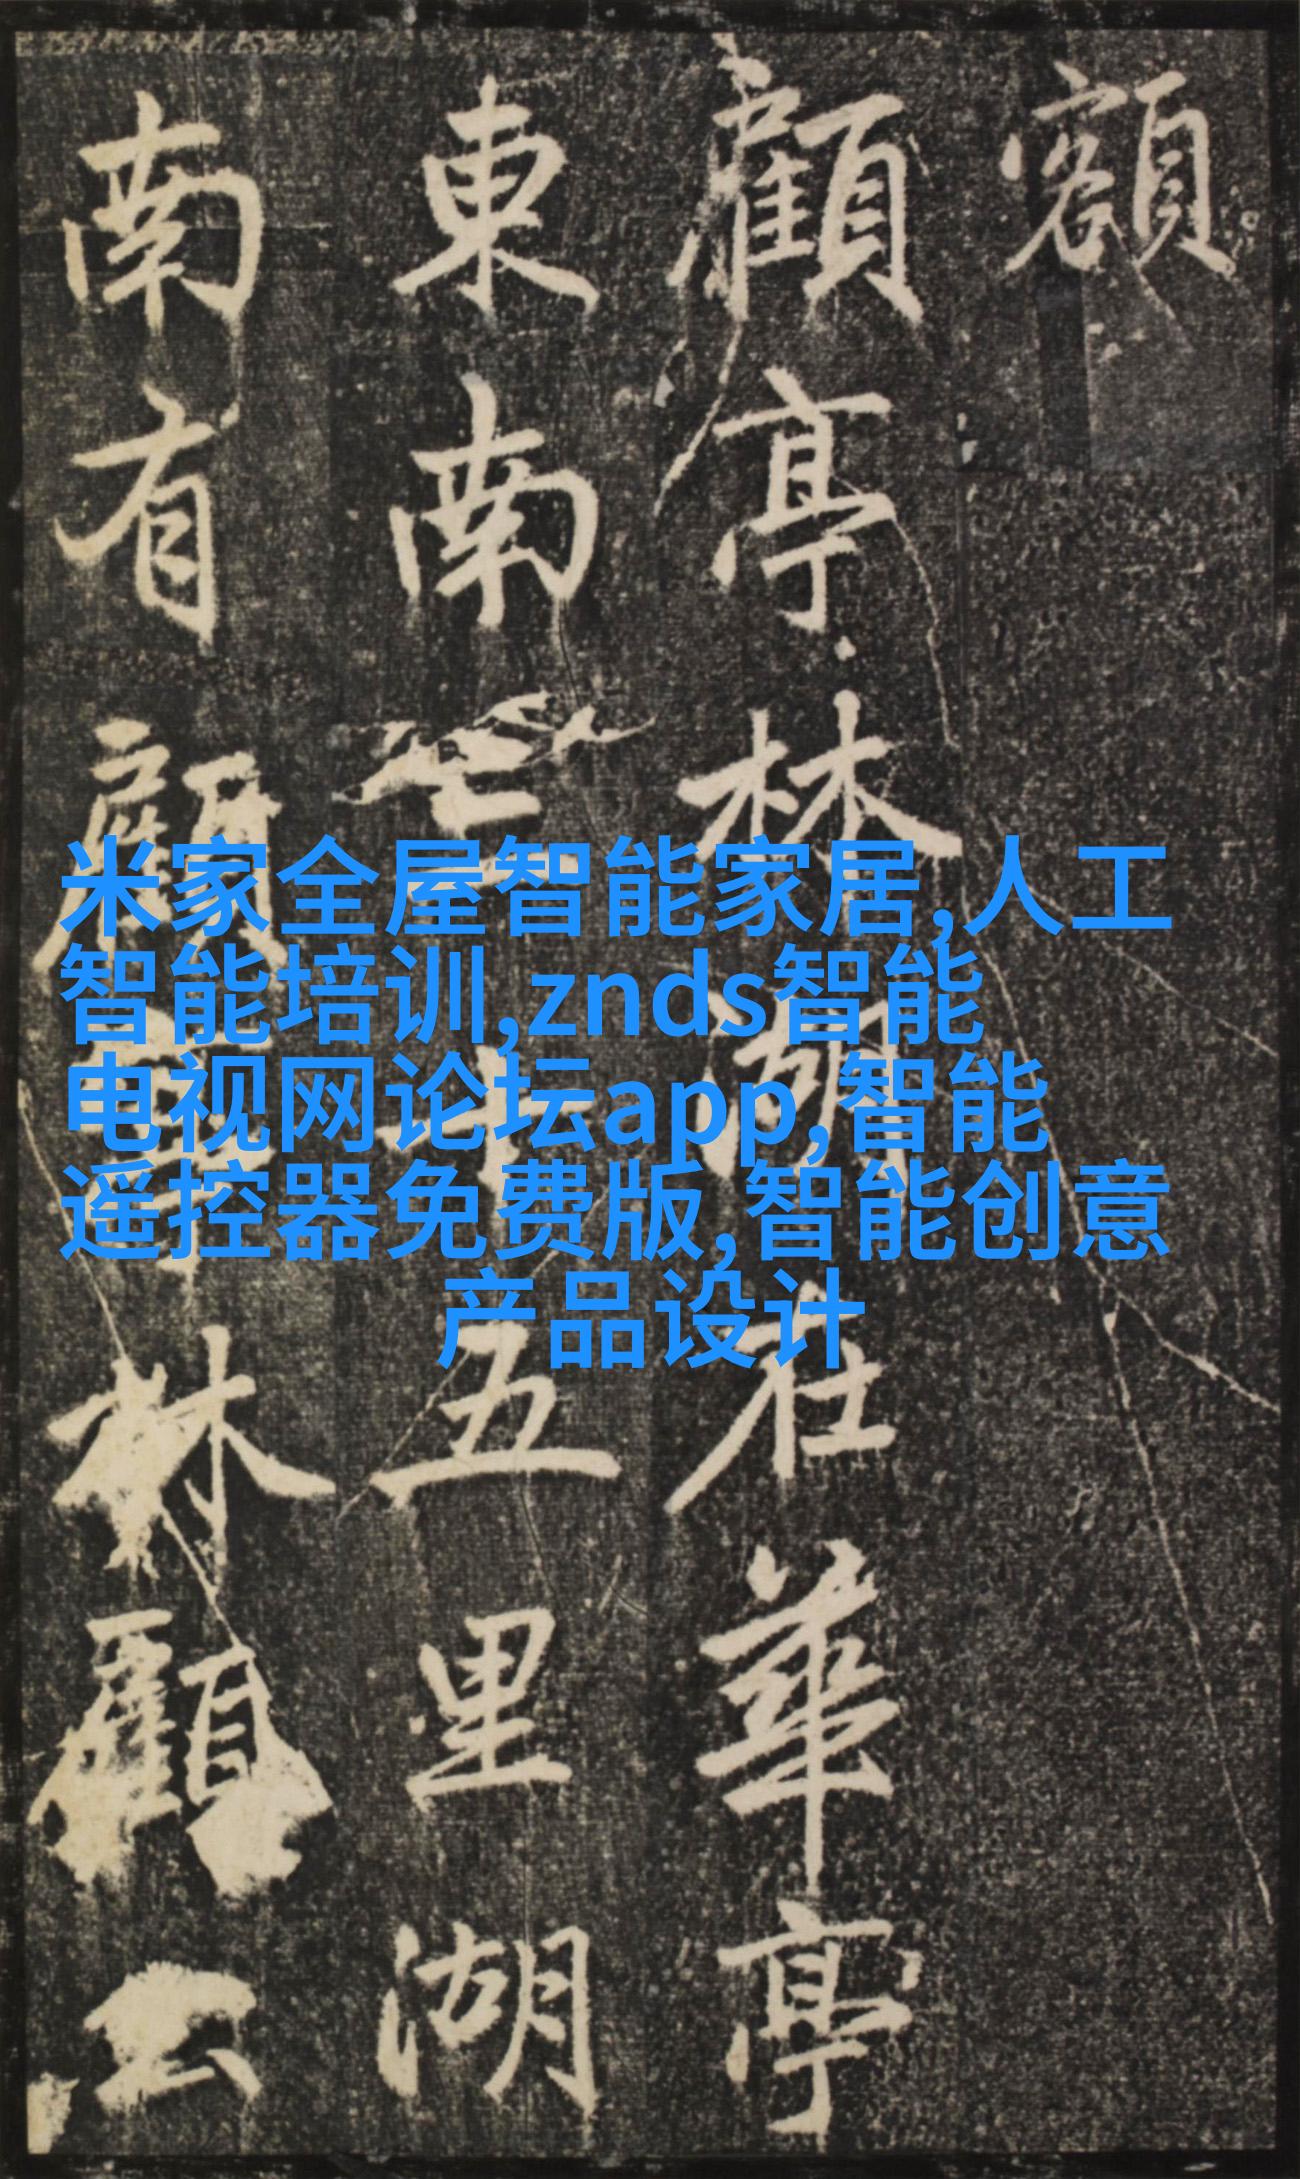 額
顧亭林湖在華亭
東南三十五里湖
南有顧亭林顧公
米家全屋智能家居,人工
智能培训,znds智能
电视网论坛app,智能
遥控器免费版,智能创意
产品设计